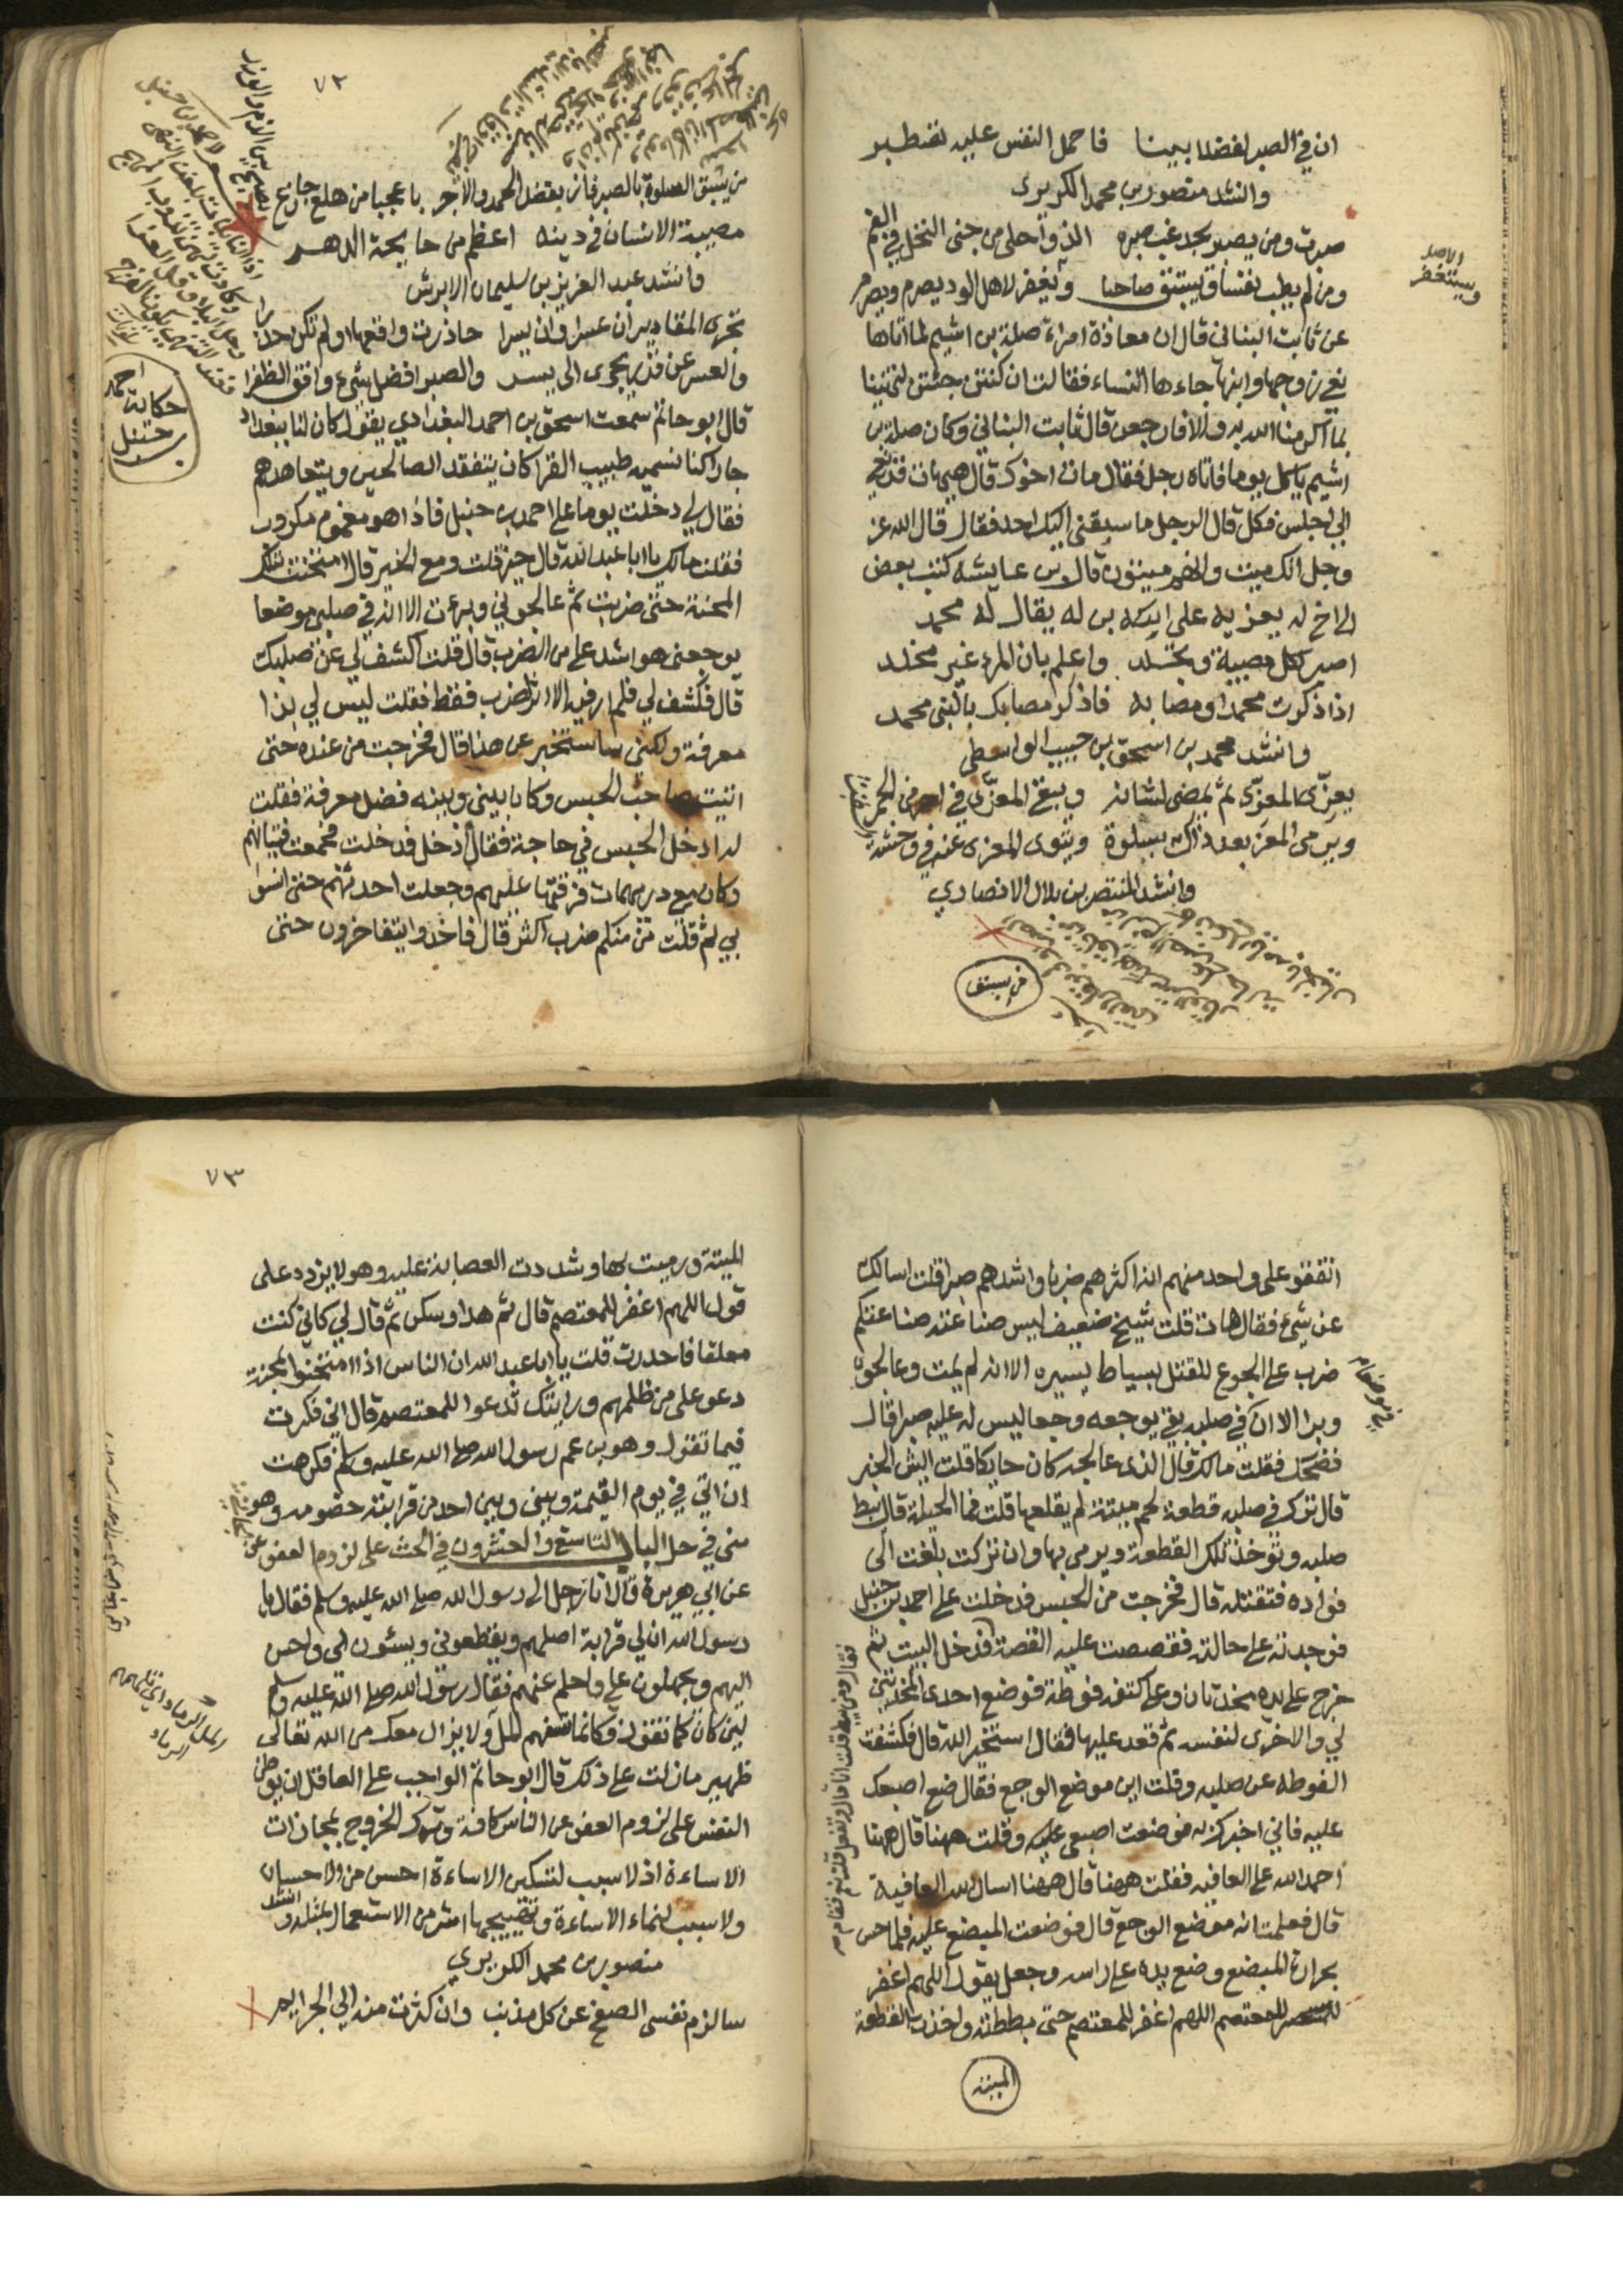 ان في الصبر لفضلا بينا فاحمل النفس عليه تصطبر
وانشد منصور بن محمد الكريزى
صبرت ومن يصبر يجد غب صبره الذ واحلى من جنى النخل في الفم
ومن لم يطب نفسا ويستبق صاحبا ويغفر لاهل الود يصرم ويصرم
الاصل
ويستغفر
عن ثابت البناني قال ان معاذة امراة صلة بن اشيم لما اتاها
نعي زوجها وابنها جاءها النساء فقالت ان كنتن جئتن لتهنينا
بما اكرمنا الله به والا فارجعن قال ثابت البناني وكان صلة بن
اشيم ياكل يوما فاتاه رجل فقال مات اخوك قال هيهات قد نعي
الي اجلس فكل قال الرجل ما سبقني اليك احد فقال قال الله عز
وجل انك ميت وانهم ميتون قال بن عايشه كتب بعض
الى اخ له يعزيه على ابن له يقال له محمد
اصبر لكل مصيبة وتجلد واعلم بان المرء غير مخلد
اذا ذكرت محمدا ومصابه فاذكر مصابك بالنبى محمد
وانشد محمد بن اسحق بن حبيب الواسطى
يعزّى المعزّى ثم يمضى لشانه ويبقى المعزّى في احر من الجمر
ويرمى المعز بعد ذاك بسلوة ويثوى المعزى عنه في وحشة
وانشد المنتصر بن بلال الانصاري
من يسبق
٧٢
من يسبق السلوة بالصبر فاز بفضل الحمد والاجر يا عجبا من هلع جازع
مصيبة الانسان في دينه اعظم من جايحة الدهر
وانشد عبد العزيز بن سليمان الابرش
تجرى المقادير ان عسرا وان يسرا حاذرت واقعها او لم تكن حذرا
والعسر عن قدر يجرى الى يسر والصبر افضل شيء وافق الظفرا
قال ابو حاتم سمعت اسحق بن احمد البغدادي يقول كان لنا ببغداد
حكاية احمد
بن حنبل
جار كنا نسميه طبيب القرا كان يتفقد الصالحين ويتعاهدهم
فقال لي دخلت يوما على احمد بن حنبل فاذا هو مغموم مكروب
فقلت مالك يا ابا عبد الله قال خير قلت ومع الخير قال امتحنت بتلك
المحنة حتى ضربت ثم عالجوني وبرءت الا انه في صلبي موضعا
يوجعنى هو اشد علي من الضرب قال قلت اكشف لي عن صلبك
قال فكشف لي فلم ار فيه الا اثر الضرب فقط فقلت ليس لي بذا
معرفة ولكني ساستخبر عن هذا قال فخرجت من عنده حتى
اتيت صاحب الحبس وكان بيني وبينه فضل معرفة فقلت
له ادخل الحبس في حاجة فقال ادخل فدخلت فجمعت فتيانهم
وكان معي دريهمات فرقتها عليهم وجعلت احدثهم حتى انسوا
بي ثم قلت من منكم ضرب اكثر قال فاخذوا يتفاخرون حتى
اتفقو على واحد منهم انه اكثرهم ضربا واشدهم صبرا قلت اسالك
عن شيء فقال هات قلت شيخ ضعيف ليس صناعته صناعتكم
ضرب على الجوع للقتل بسياط يسيره الا انه لم يمت وعالجوه
وبرا الا ان في صلبه بقي يوجعه وجعا ليس له عليه صبر اقال
فضحك فقلت مالك قال الذى عالجه كان حايكا قلت ايش الخبر
قال ترك في صلبه قطعة لحم ميتة لم يقلعها قلت فما الحيلة قال يبط
صلبه وتوخذ تلك القطعة ويرمى بها وان تركت بلغت الى
فواده فتقتله قال فخرجت من الحبس فدخلت على احمد بن حنبل
فوجدته على حالته فقصصت عليه القصة فدخل البيت ثم
خرج على يده مخدتان وعلى كتفه فوطة فوضع احدى المخدتين
لي والاخرى لنفسه ثم قعد عليها فقال استخير الله قال فكشفت
الفوطه عن صلبه وقلت اين موضع الوجع فقال ضع اصبعك
عليه فاني اخبرك به فوضعت اصبعى عليه وقلت ههنا قال ههنا
احمد الله على العافيه فقلت ههنا قال ههنا اسال الله العافية
قال فعلمت انه موضع الوجع قال فوضعت المبضع عليه فلما حس
بحرارة المبضع وضع يده على راسه وجعل يقول اللهم اغفر
للمعتصم اللهم اغفر للمعتصم حتى بططته واخذت القطعة
الميتة
٧٣
الميتة ورميت بها وشددت العصابة عليه وهو لا يزيد على
قول اللهم اغفر للمعتصم قال ثم هدا وسكن ثم قال لي كاني كنت
معلقا فاحدرت قلت يا ابا عبد الله ان الناس اذا امتحنوا بمحنة
دعو على من ظلمهم ورايتك تدعوا للمعتصم قال اني فكرت
فيما تقول وهو بن عم رسول الله صلى الله عليه وسلم فكرهت
ان اتي في يوم القيمة وبيني وبين احد من قرابته خصومه وهو
مني في حل الباب التاسع والعشرون في الحث على لزوم العفو عن
عن ابي هريرة قال اتا رجل الى رسول الله صلى الله عليه وسلم فقال يا
رسول الله ان لي قرابة اصلهم ويقطعوني ويسئون الى واحسن
اليهم ويجهلون علي واحلم عنهم فقال رسول الله صلى الله عليه وسلم
لين كان كما تقول فكانما تسفهم المل ولا يزال معك من الله تعالى
ظهير ما زلت على ذلك قال ابو حاتم الواجب على العاقل ان يوطن
النفس على لزوم العفو عن الناس كافة وترك الخروج بمجازات
الاساءة اذ لا سبب لتسكين الاساءة احسن من الاحسان
ولا سبب لنماء الاساءة وتهييجها اشر من الاستعمال بمثلها وانشد
منصور بن محمد الكريزي
سالزم نفسى الصفح عن كل مذنب وان كثرت منه الي الجرايم